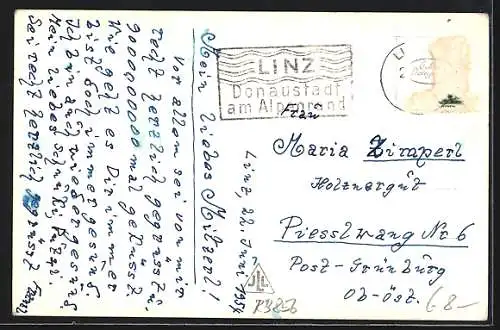 Mein liebes Mitzerl!
Vor allem sei von mir
recht herzlich gegrüßt u.
9000000000 mal geküsst
Wie geht es Dir immer
bist doch immer gesund.
Ich bin auch wieder gesund.
Mein liebes
Sei recht herzlich gegrüsst
Linz, 22. Juni 1954
LINZ
Donaustadt
am Alpenrand
Frau
Maria Ziraperl
Holznergut
Piesslwang No 6
Post-Grünburg
Ob-öst.
6 8-